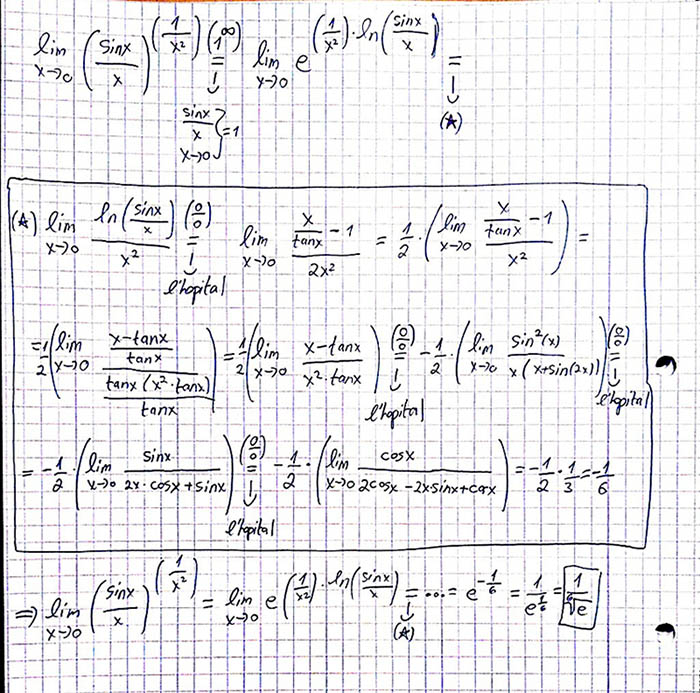 lim x→0 (sinx/x)^(1/x²) (1^∞) = lim x→0 e^(1/x²)·ln(sinx/x) =
↓ sinx/x x→0 } = 1 ↓ (★)
(★) lim x→0 ln(sinx/x)/x² (0/0) = lim x→0 (x/tanx − 1)/2x² = 1/2·(lim x→0 (x/tanx − 1)/x²) =
↓ l'hopital
= 1/2 (lim x→0 ((x−tanx)/tanx)/((tanx(x²·tanx))/tanx)) = 1/2 (lim x→0 (x−tanx)/(x²·tanx)) (0/0) = −1/2·(lim x→0 sin²(x)/(x(x+sin(2x)))) (0/0) =
↓ l'hopital ↓ l'hopital
= −1/2·(lim x→0 sinx/(2x·cosx+sinx)) (0/0) = −1/2·(lim x→0 cosx/(2cosx−2x·sinx+cosx)) = −1/2·1/3 = −1/6
↓ l'hopital
⇒ lim x→0 (sinx/x)^(1/x²) = lim x→0 e^(1/x²)·ln(sinx/x) = ... = e^(−1/6) = 1/e^(1/6) = 1/⁶√e
↓ (★)